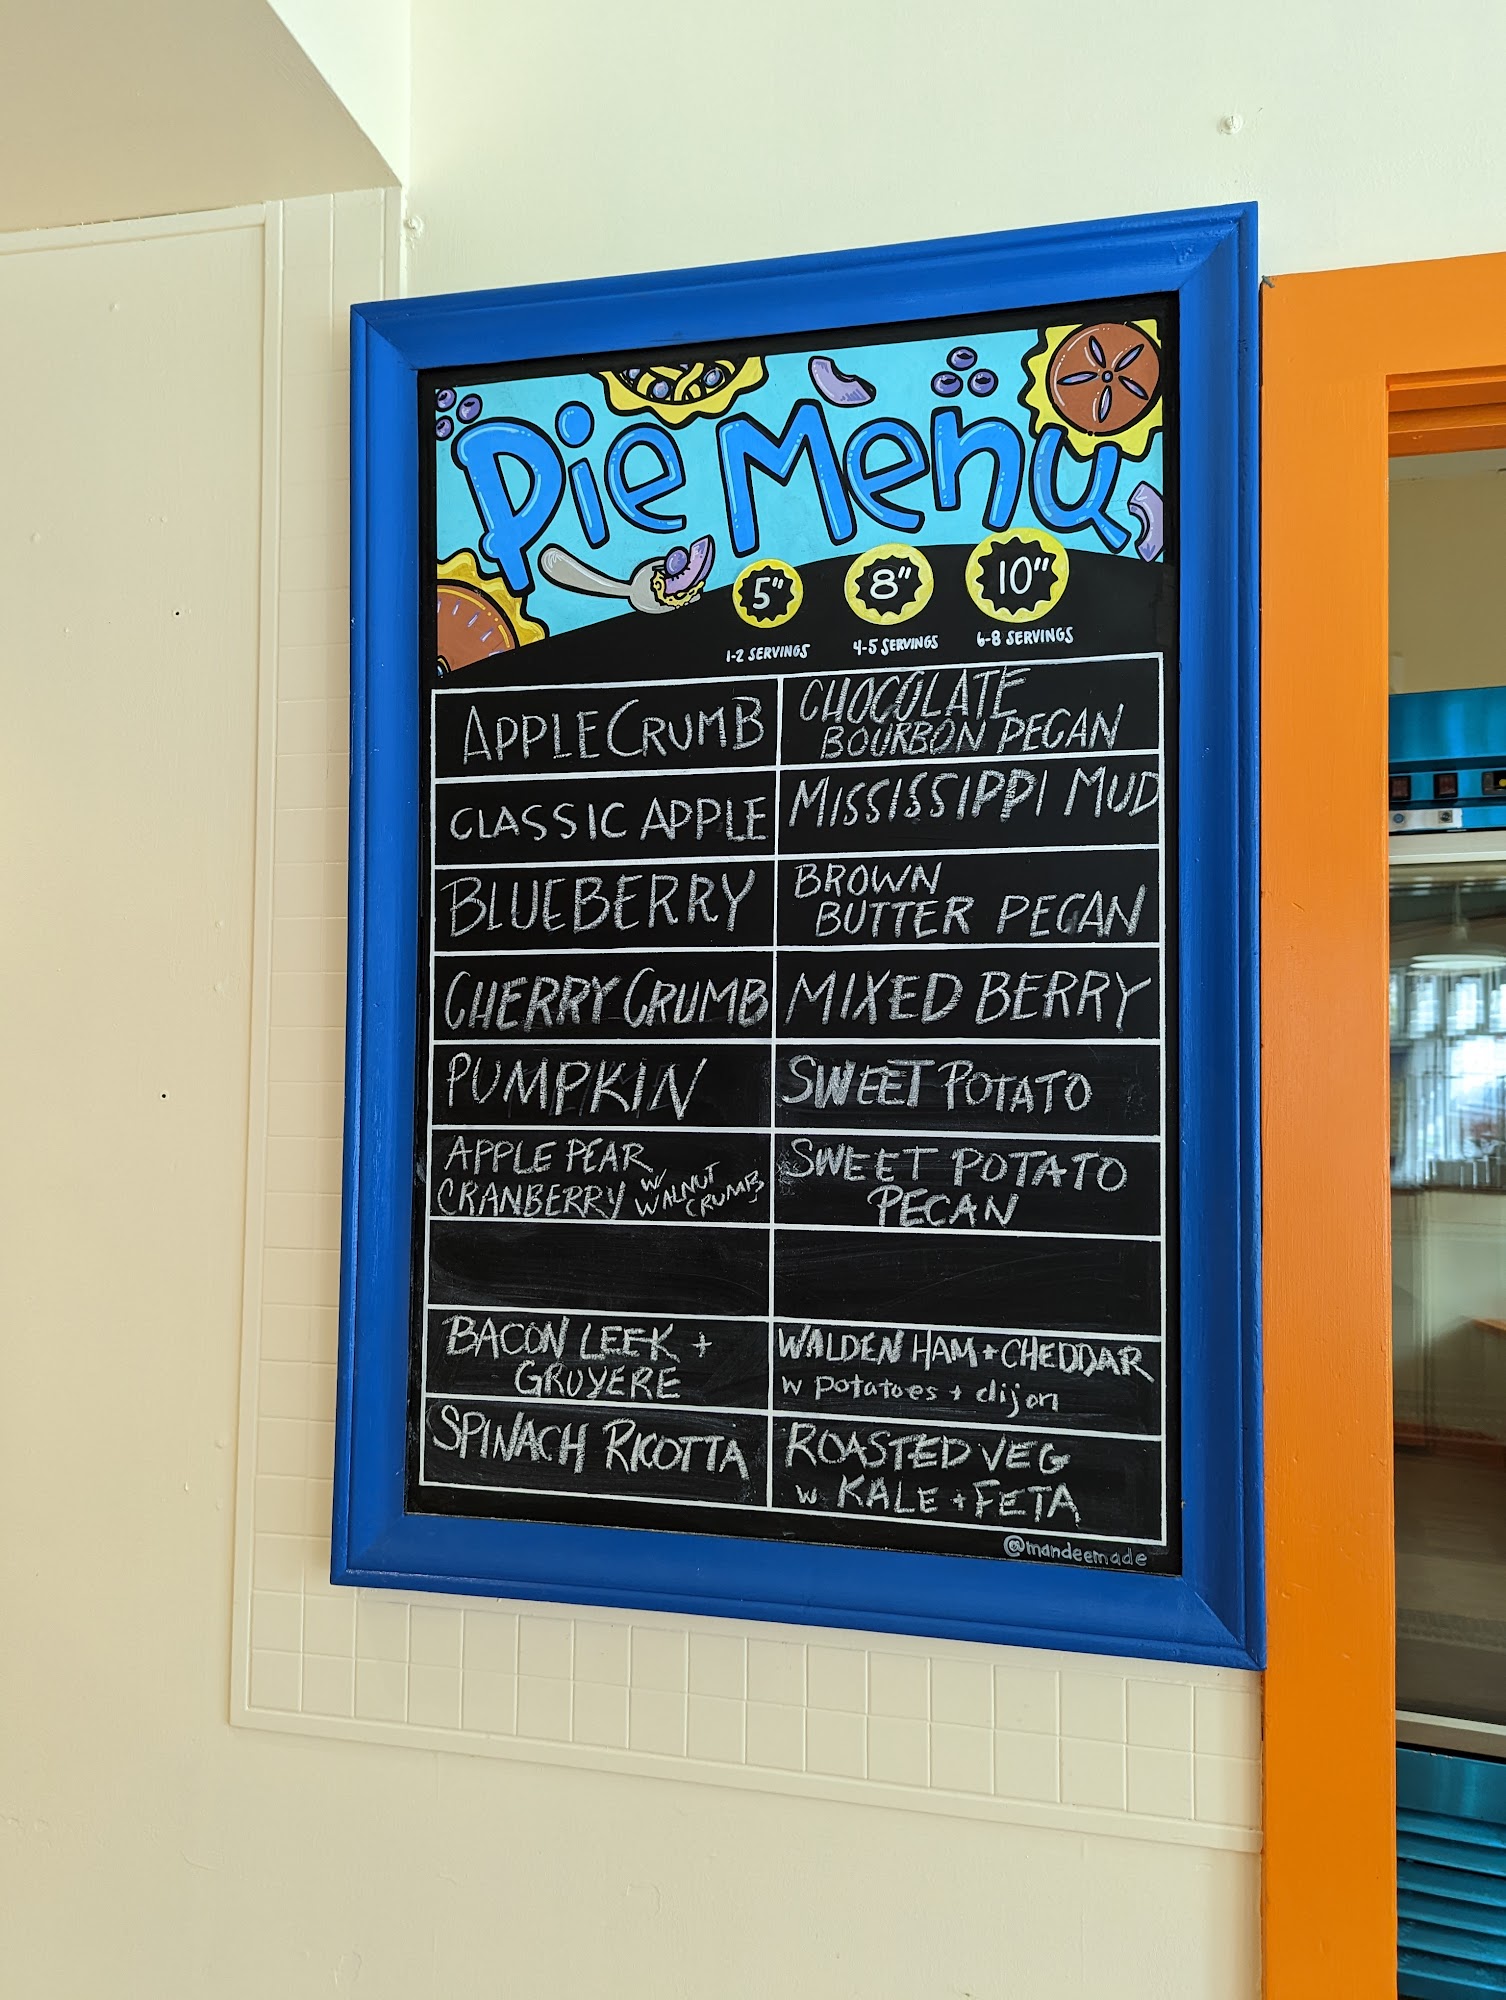 Pie Menu
5" 8" 10"
1-2 SERVINGS 4-5 SERVINGS 6-8 SERVINGS
APPLE CRUMB
CHOCOLATE
BOURBON PECAN
CLASSIC APPLE
MISSISSIPPI MUD
BLUEBERRY
BROWN
BUTTER PECAN
CHERRY CRUMB
MIXED BERRY
PUMPKIN
SWEET POTATO
APPLE PEAR
CRANBERRY W/ WALNUT CRUMB
SWEET POTATO
PECAN
BACON LEEK +
GRUYERE
WALDEN HAM + CHEDDAR
w potatoes + dijon
SPINACH RICOTTA
ROASTED VEG
W KALE + FETA
@mandeemade